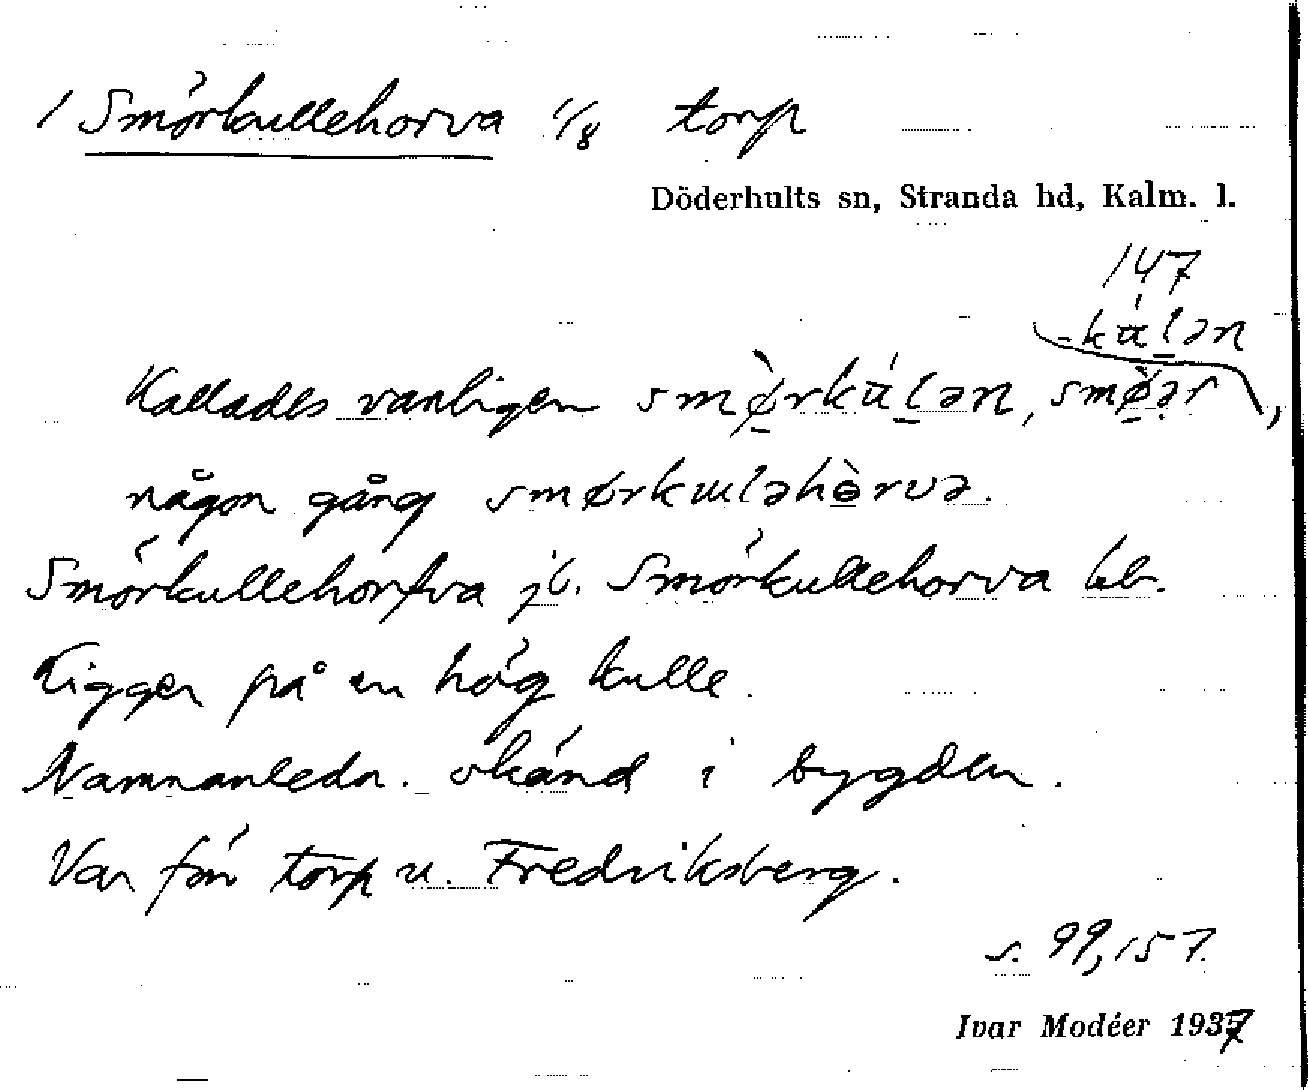 1 Smörkullehorva 1/8 torp
Döderhults sn, Stranda hd, Kalm. l.
147
-kúlən
Kallades vanligen smø̀rkúlən, smø̀ər,
någon gång smørkɯləhɵ̀rvə.
Smörkullehorfva jb. Smörkullehorva kb.
Ligger på en hög kulle.
Namnanledn. okänd i bygden.
Var förr torp u. Fredriksberg.
s. 99, 157.
Ivar Modéer 1937